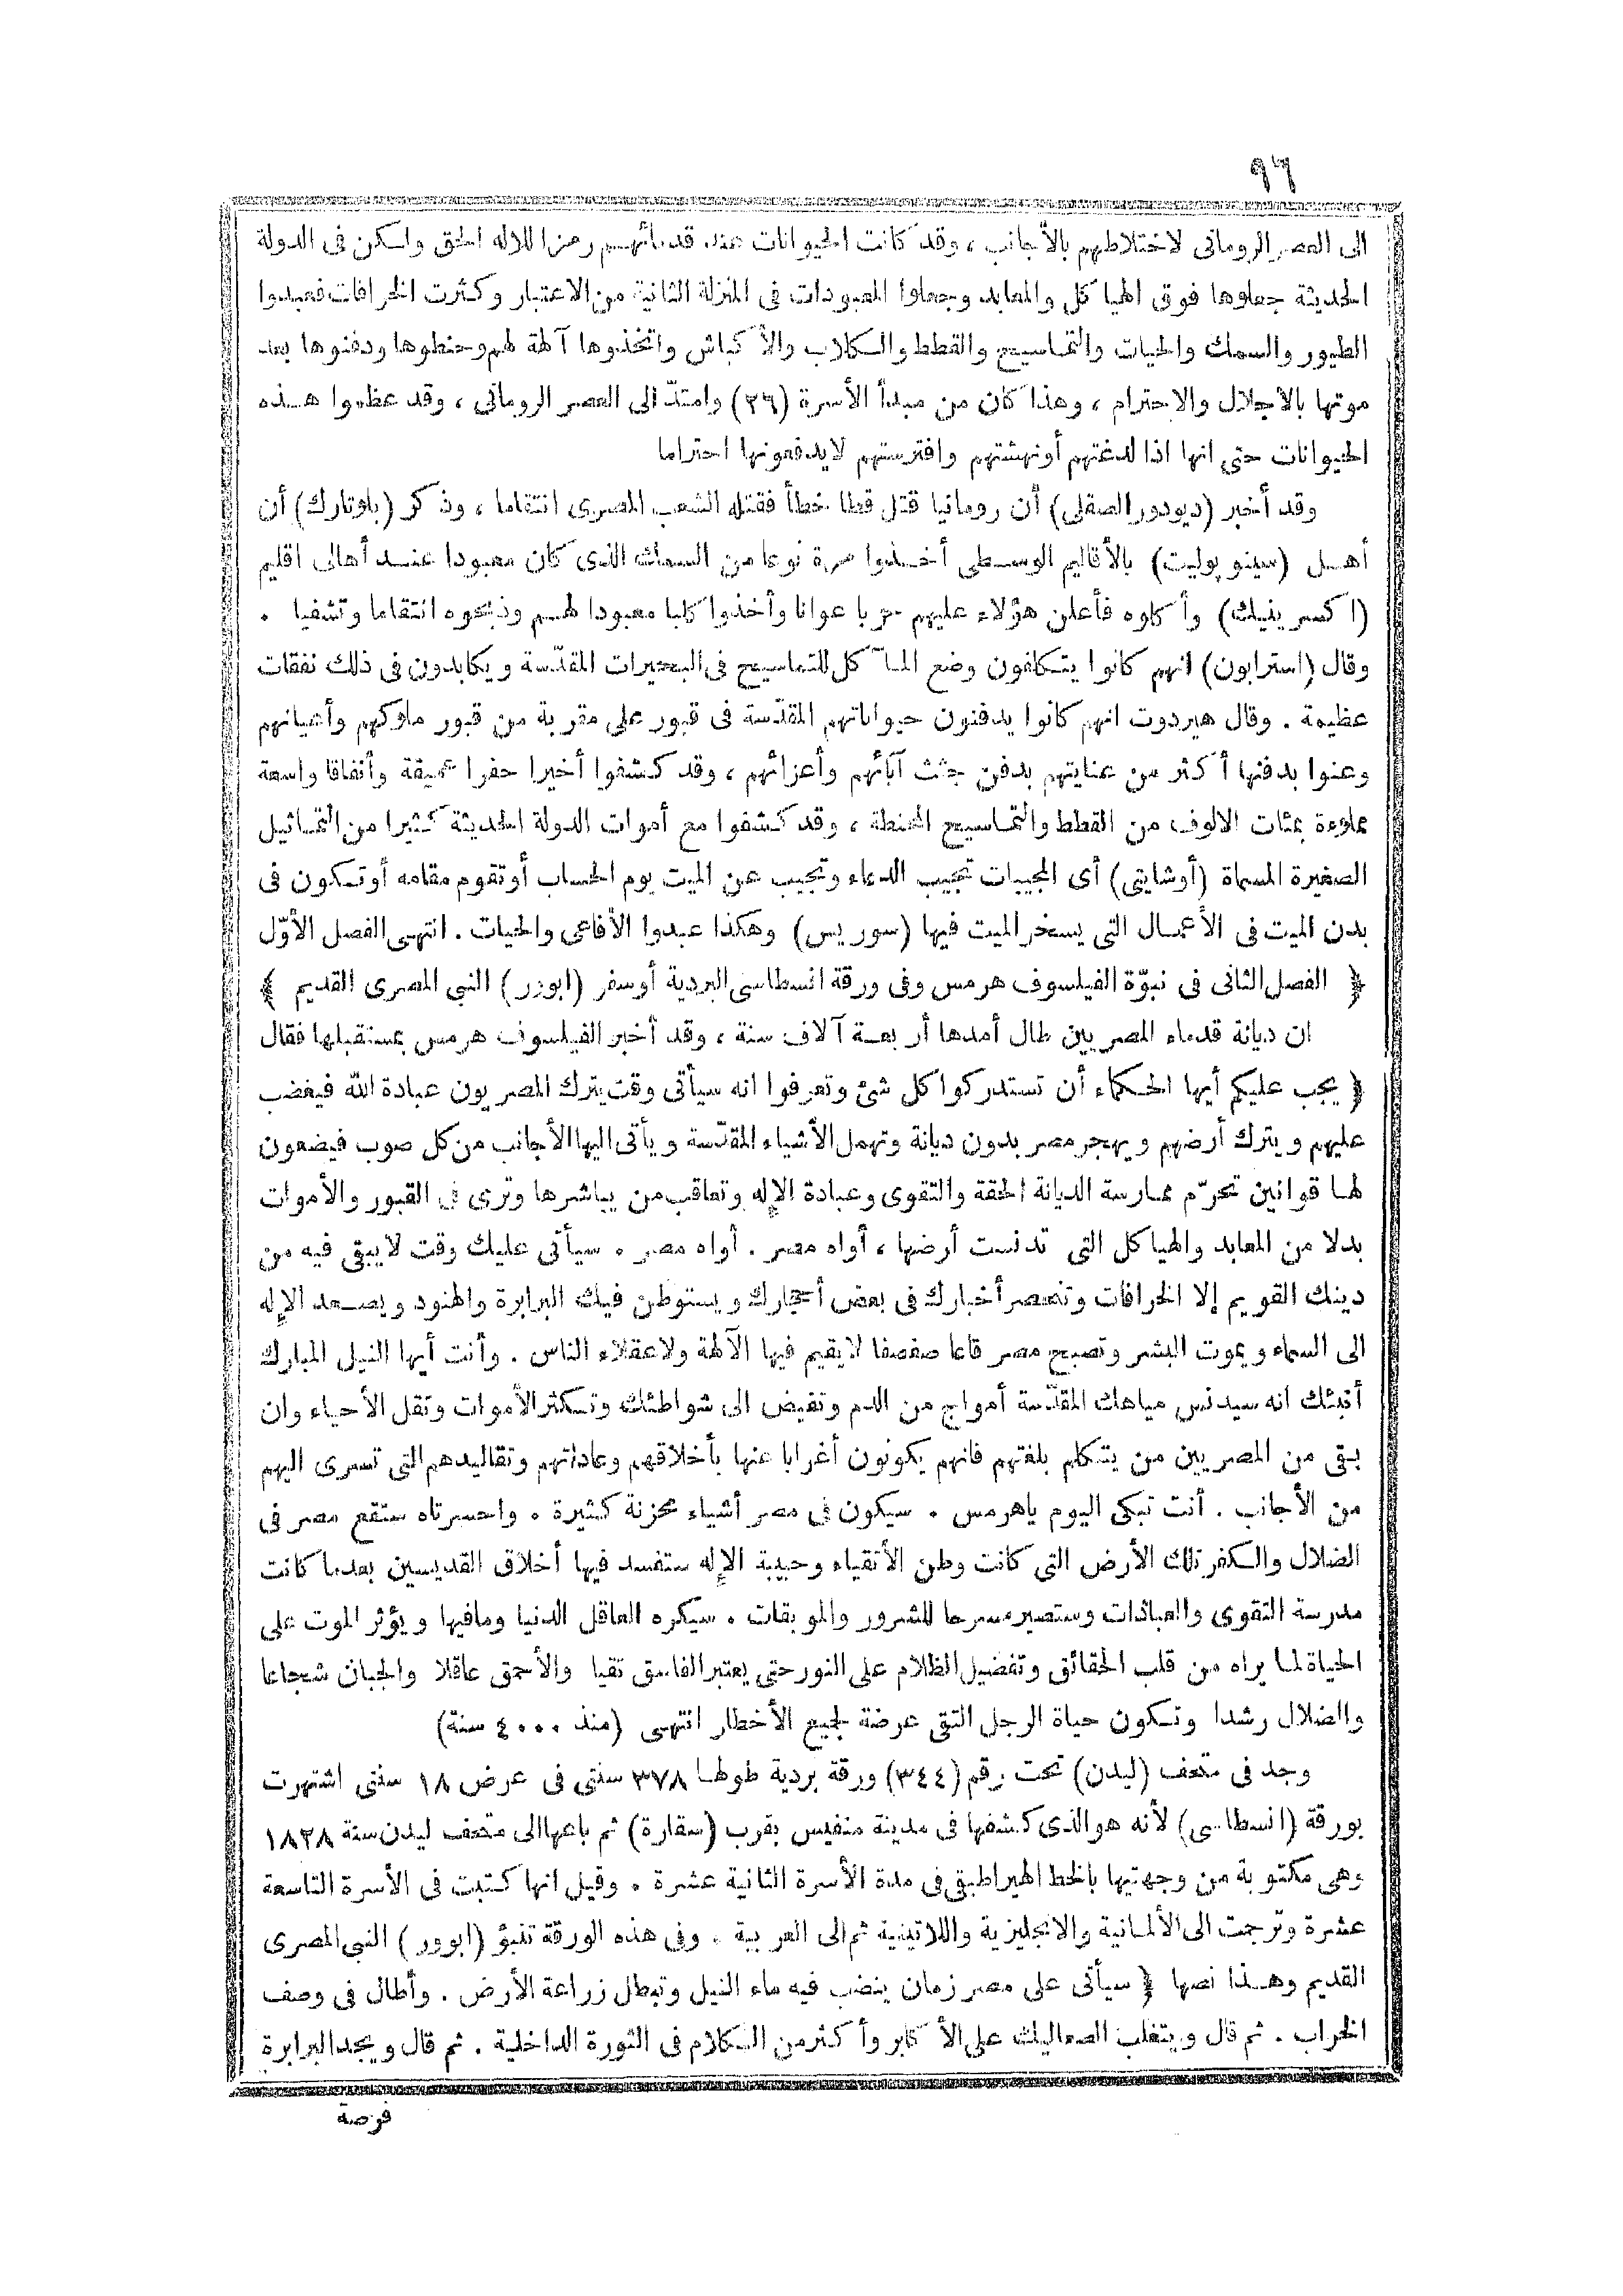 ٩٦
الى العصر الرومانى لاختلاطهم بالأجانب ، وقد كانت الحيوانات عند قدمائهم رمزا للاله الحق ولكن فى الدولة
الحديثة جعلوها فوق الهياكل والمعابد وجعلوا المعبودات فى المنزلة الثانية من الاعتبار وكثرت الخرافات فعبدوا
الطيور والسمك والحيات والتماسيح والقطط والكلاب والأكباش واتخذوها آلهة لهم وحنطوها ودفنوها بعد
موتها بالاجلال والاحترام ، وهذا كان من مبدأ الأسرة (٢٦) وامتدّ الى العصر الرومانى ، وقد عظموا هذه
الحيوانات حتى انها اذا لدغتهم أونهشتهم وافترستهم لايدفعونها احتراما
وقد أخبر (ديودور الصقلى) أن رومانيا قتل قطا خطأ فقتله الشعب المصرى انتقاما ، وذكر (بلوتارك) أن
أهل (سينوبوليت) بالأقاليم الوسطى أخذوا مرة نوعا من السمك الذى كان معبودا عند أهالى اقليم
(اكسرينيك) وأكلوه فأعلن هؤلاء عليهم حربا عوانا وأخذوا كلبا معبودا لهم وذبحوه انتقاما وتشفيا .
وقال (استرابون) انهم كانوا يتكلفون وضع المآكل للتماسيح فى البحيرات المقدّسة ويكابدون فى ذلك نفقات
عظيمة . وقال هيردوت انهم كانوا يدفنون حيواناتهم المقدّسة فى قبور على مقربة من قبور ملوكهم وأعيانهم
وعنوا بدفنها أكثر من عنايتهم بدفن جثث آبائهم وأعزائهم ، وقد كشفوا أخيرا حفرا عميقة وأنفاقا واسعة
مملوءة بمئات الالوف من القطط والتماسيح المحنطة ، وقد كشفوا مع أموات الدولة الحديثة كثيرا من التماثيل
الصغيرة المسماة (أوشابتى) أى المجيبات تجيب الدعاء وتجيب عن الميت يوم الحساب أوتقوم مقامه أوتكون فى
بدن الميت فى الأعمال التى يسخر الميت فيها (سوريس) وهكذا عبدوا الأفاعى والحيات . انتهى الفصل الأوّل
﴿ الفصل الثانى فى نبوّة الفيلسوف هرمس وفى ورقة انسطاسى البردية أوسفر (ابوور) النبى المصرى القديم ﴾
ان ديانة قدماء المصريين طال أمدها أربعة آلاف سنة ، وقد أخبر الفيلسوف هرمس بمستقبلها فقال
﴿ يجب عليكم أيها الحكماء أن تستدركوا كل شئ وتعرفوا انه سيأتى وقت يترك المصريون عبادة الله فيغضب
عليهم ويترك أرضهم ويهجر مصر بدون ديانة وتهمل الأشياء المقدّسة ويأتى اليها الأجانب من كل صوب فيضعون
لها قوانين تحرّم ممارسة الديانة الحقة والتقوى وعبادة الإله وتعاقب من يباشرها وترى فى القبور والأموات
بدلا من المعابد والهياكل التى تدنست أرضها ، أواه مصر . أواه مصر . سيأتى عليك وقت لايبقى فيه من
دينك القويم إلا الخرافات وتنحصر أخبارك فى بعض أحجارك ويستوطن فيك البرابرة والهنود ويصعد الإله
الى السماء ويموت البشر وتصبح مصر قاعا صفصفا لايقيم فيها الآلهة ولاعقلاء الناس . وأنت أيها النيل المبارك
أنبئك انه سيدنس مياهك المقدّسة أمواج من الدم وتفيض الى شواطئك وتكثر الأموات وتقل الأحياء وان
بقى من المصريين من يتكلم بلغتهم فانهم يكونون أغرابا عنها بأخلاقهم وعاداتهم وتقاليدهم التى تسرى اليهم
من الأجانب . أنت تبكى اليوم ياهرمس . سيكون فى مصر أشياء محزنة كثيرة . واحسرتاه ستقع مصر فى
الضلال والكفر تلك الأرض التى كانت وطن الأتقياء وحبيبة الإله ستفسد فيها أخلاق القديسين بعدما كانت
مدرسة التقوى والعبادات وستصير مسرحا للشرور والموبقات . سيكره العاقل الدنيا ومافيها ويؤثر الموت على
الحياة لما يراه من قلب الحقائق وتفضيل الظلام على النور حتى يعتبر الفاسق تقيا والأحمق عاقلا والجبان شجاعا
والضلال رشدا وتكون حياة الرجل التقى عرضة لجميع الأخطار انتهى (منذ ٤٠٠٠ سنة)
وجد فى متحف (ليدن) تحت رقم (٣٤٤) ورقة بردية طولها ٣٧٨ سنتى فى عرض ١٨ سنتى اشتهرت
بورقة (انسطاسى) لأنه هو الذى كشفها فى مدينة منفيس بقرب (سقارة) ثم باعها الى متحف ليدن سنة ١٨٢٨
وهى مكتوبة من وجهتيها بالخط الهيراطيقى فى مدة الأسرة الثانية عشرة . وقيل انها كتبت فى الأسرة التاسعة
عشرة وترجمت الى الألمانية والانجليزية واللاتينية ثم الى العربية . وفى هذه الورقة تنبؤ (ابوور) النبى المصرى
القديم وهذا نصها ﴿ سيأتى على مصر زمان ينضب فيه ماء النيل وتبطل زراعة الأرض . وأطال فى وصف
الخراب . ثم قال ويتغلب الصعاليك على الأكابر وأكثر من الكلام فى الثورة الداخلية . ثم قال ويجد البرابرة
فرصة